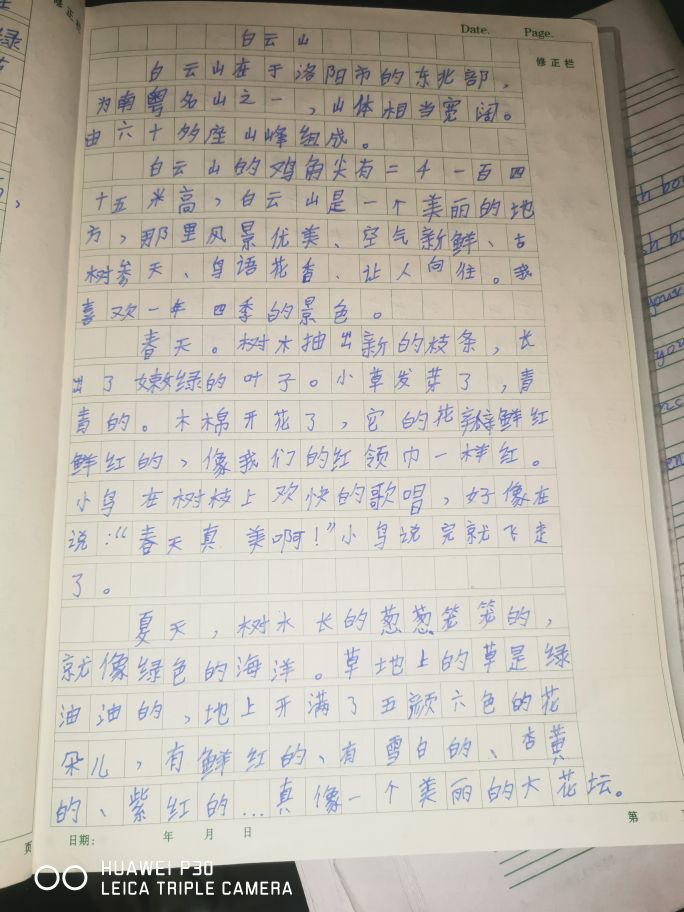 Date. Page.
白云山
修正栏
白云山在于洛阳市的东北部，
为南粤名山之一，山体相当宽阔。
由六十多座山峰组成。
白云山的鸡角尖有二千一百四
十五米高，白云山是一个美丽的地
方，那里风景优美、空气新鲜、古
树参天、鸟语花香、让人向往。我
喜欢一年四季的景色。
春天。树木抽出新的枝条，长
出了嫩绿的叶子。小草发芽了，青
青的。木棉开花了，它的花瓣鲜红
鲜红的，像我们的红领巾一样红。
小鸟在树枝上欢快的歌唱，好像在
说：“春天真美啊！”小鸟说完就飞走
了。
夏天，树木长的葱葱笼笼的，
就像绿色的海洋。草地上的草是绿
油油的，地上开满了五颜六色的花
朵儿，有鲜红的、有雪白的、杏黄
的、紫红的...真像一个美丽的大花坛。
日期： 年 月 日
第
HUAWEI P30
LEICA TRIPLE CAMERA